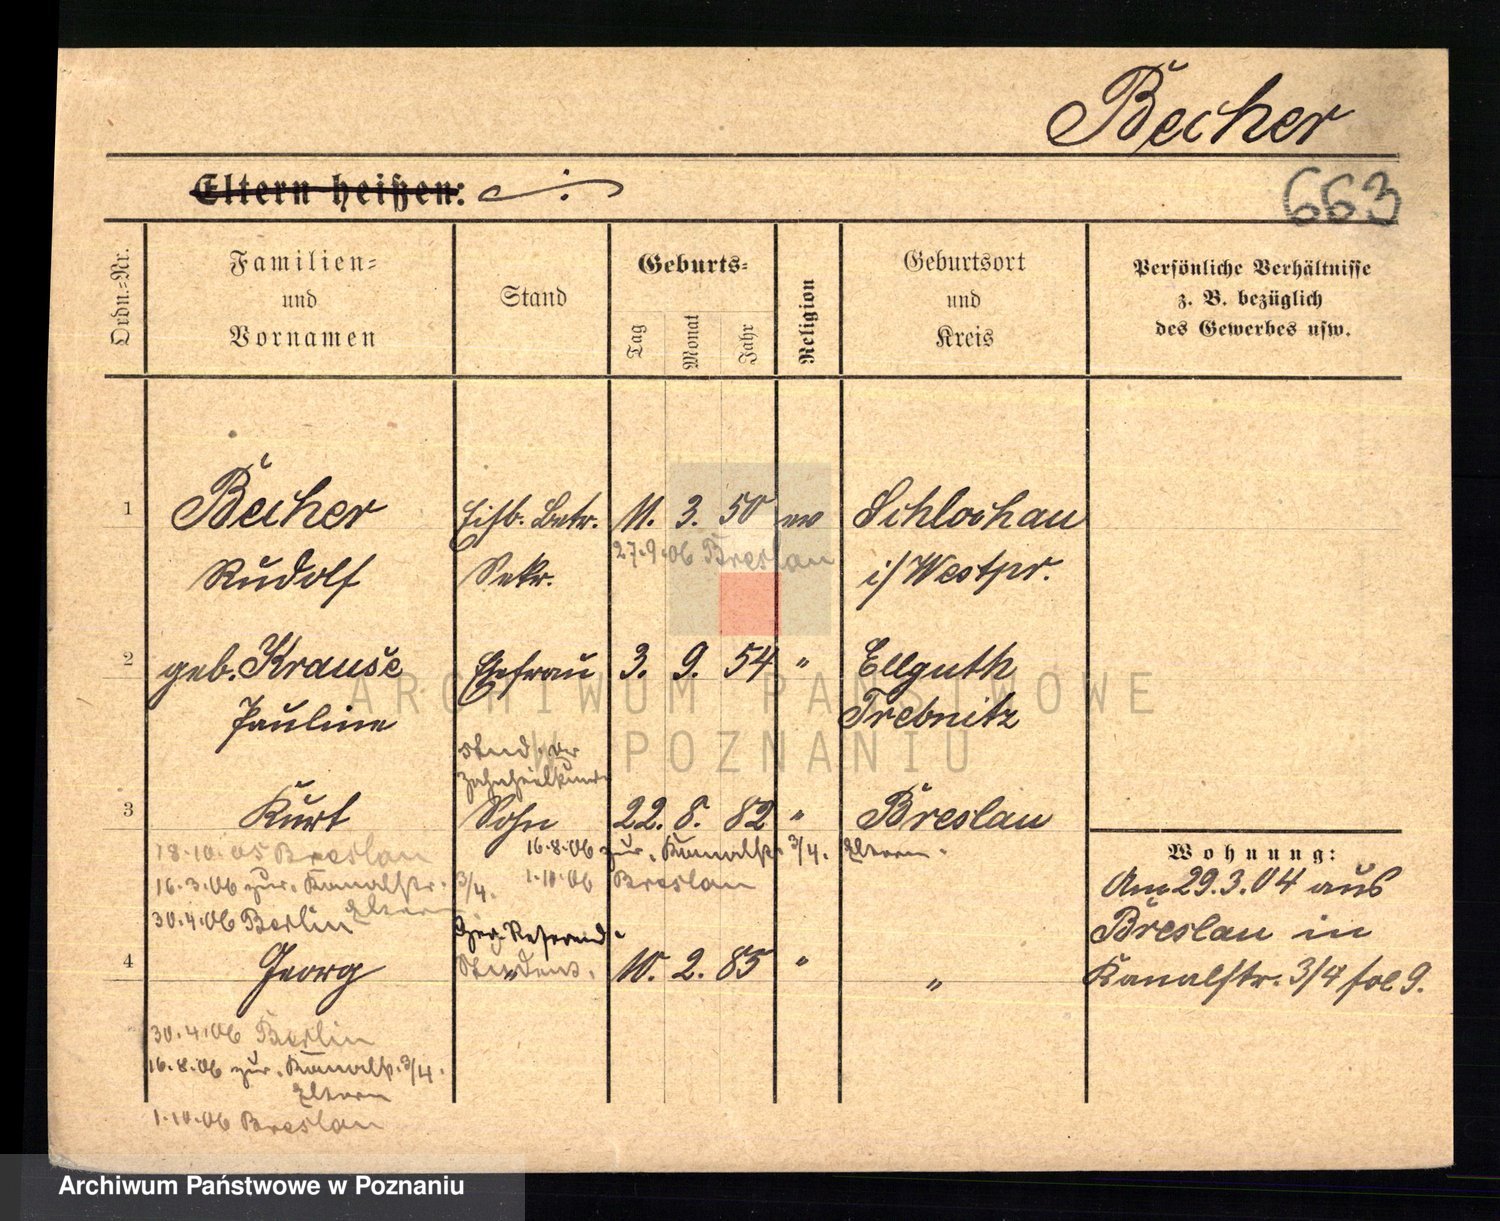 Becher
Eltern heißen:
663
Ordn.=Nr.
Familien=
und
Vornamen
Stand
Geburts=
Tag
Monat
Jahr
Religion
Geburtsort
und
Kreis
Persönliche Verhältnisse
z. B. bezüglich
des Gewerbes usw.
1
Becher
Rudolf
Eisb. Betr.
Sekr.
11. 3. 50
27.9.06 Breslau
ev
Schlochau
i/ Westpr.
2
geb. Krause
Pauline
Ehefrau
3. 9. 54
"
Ellguth
Trebnitz
ARCHIWUM PAŃSTWOWE
W POZNANIU
3
Kurt
stud. der
Zahnheilkunde
Sohn
22. 8. 82
"
Breslau
18.10.05 Breslau
16.8.06 zur. Kanalstr. 3/4. Eltern.
16.3.06 zur. Kanalstr. 3/4.
Eltern
1.10.06 Breslau
30.4.06 Berlin
4
Georg
Ger. Referend.
Student.
"
10. 2. 85
"
"
30.4.06 Berlin
16.8.06 zur. Kanalstr. 3/4.
Eltern
1.10.06 Breslau
Wohnung:
Am 29.3.04 aus
Breslau in
Kanalstr. 3/4 fol 9.
Archiwum Państwowe w Poznaniu